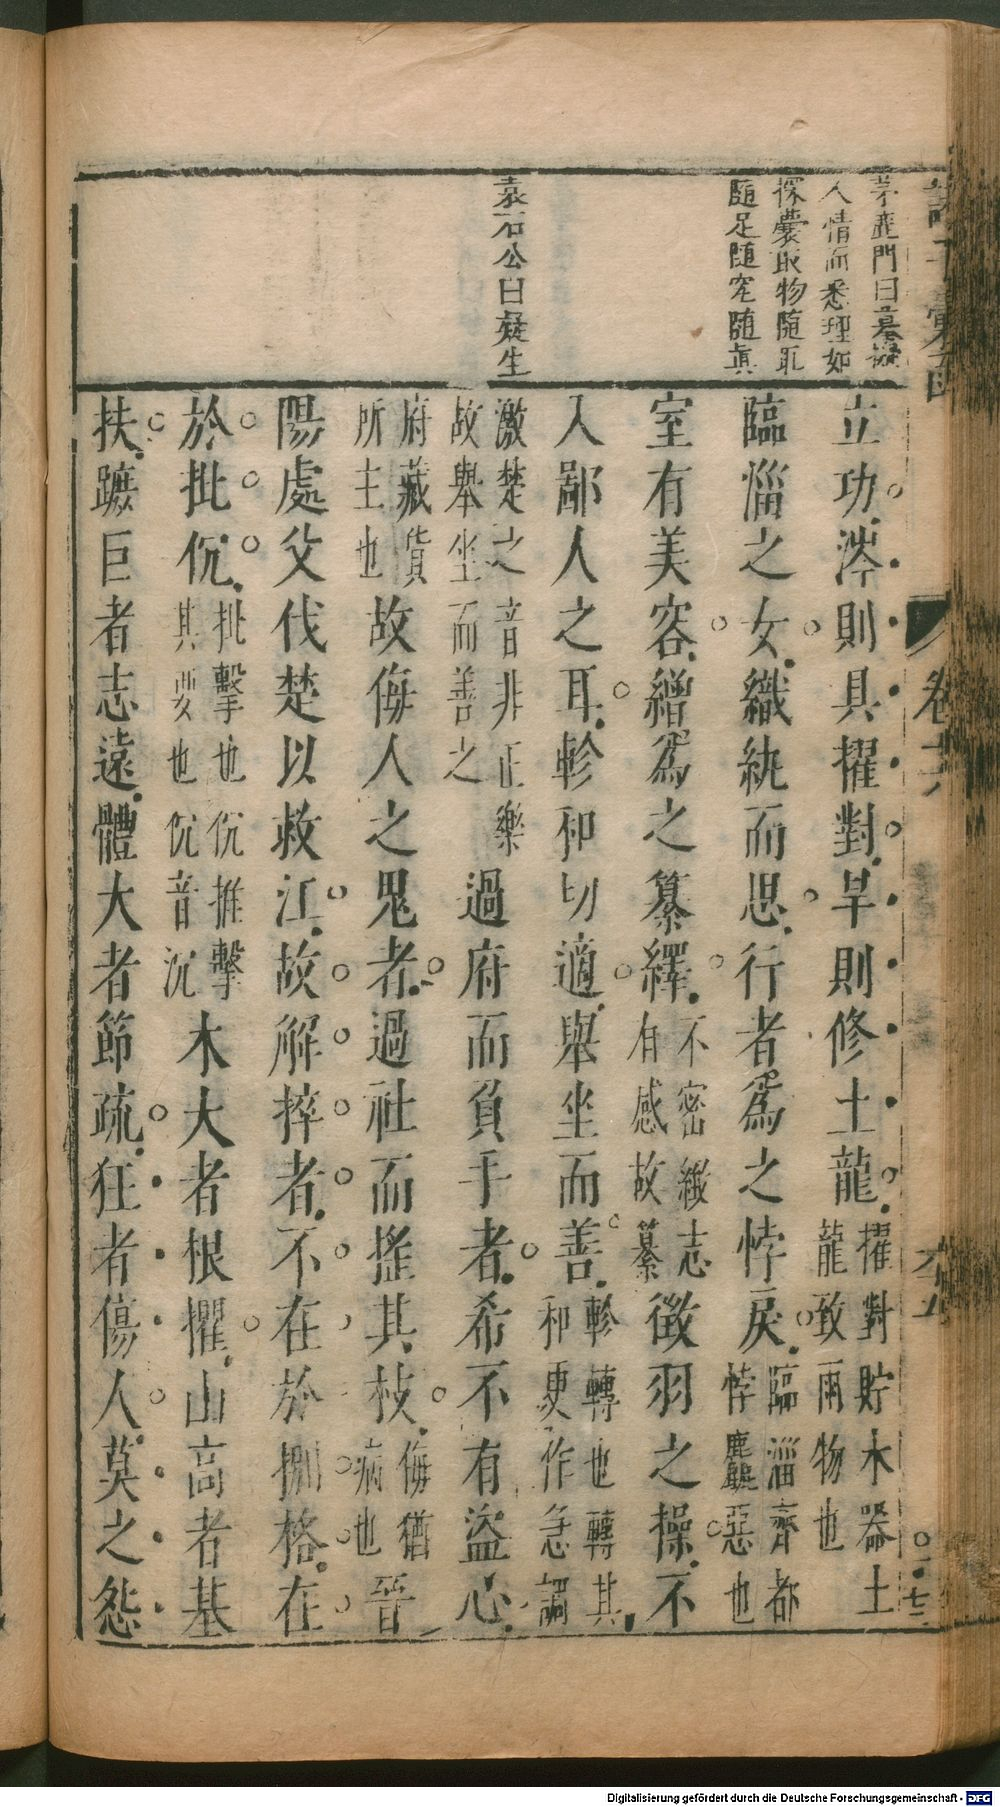 茅鹿門曰摹擬
人情而悉理如
探囊取物隨取
隨足隨究隨眞
袁石公曰凝生
立功涔則具擢對旱則修土龍擢對貯水器土
龍致雨物也
臨淄之女織紈而思行者爲之悖戾臨淄齊都
悖麤惡也
室有美容繒爲之纂繹不密緻志
有感故纂
徵羽之操不
入鄙人之耳軫和切適舉坐而善軫轉也轉其
和更作急調
激楚之音非正樂
故舉坐而善之
過府而負手者希不有盜心
府藏貨
所主也
故侮人之鬼者過社而搖其枝侮猶
病也
晉
陽處父伐楚以救江故解捽者不在於捌格在
於批伔批擊也伔推擊
其要也伔音沉
木大者根擢山高者基
扶蹠巨者志遠體大者節疏狂者傷人莫之怨
卷十六
Digitalisierung gefördert durch die Deutsche Forschungsgemeinschaft - DFG